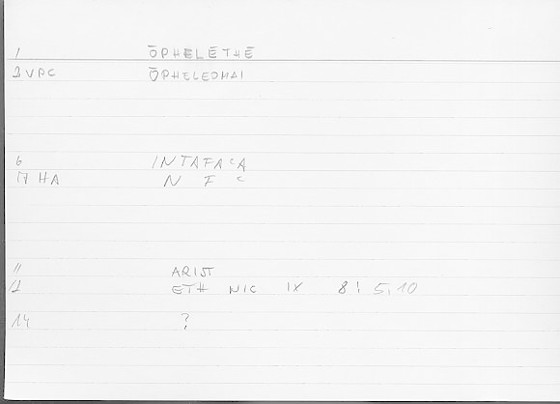 1 ŌPHELĒTHĒ
2 VPC ŌPHELEOMAI
6 INTAFACA
17 HA N F C
11 ARIST
2 ETH NIC IX 8: 5,10
14 ?